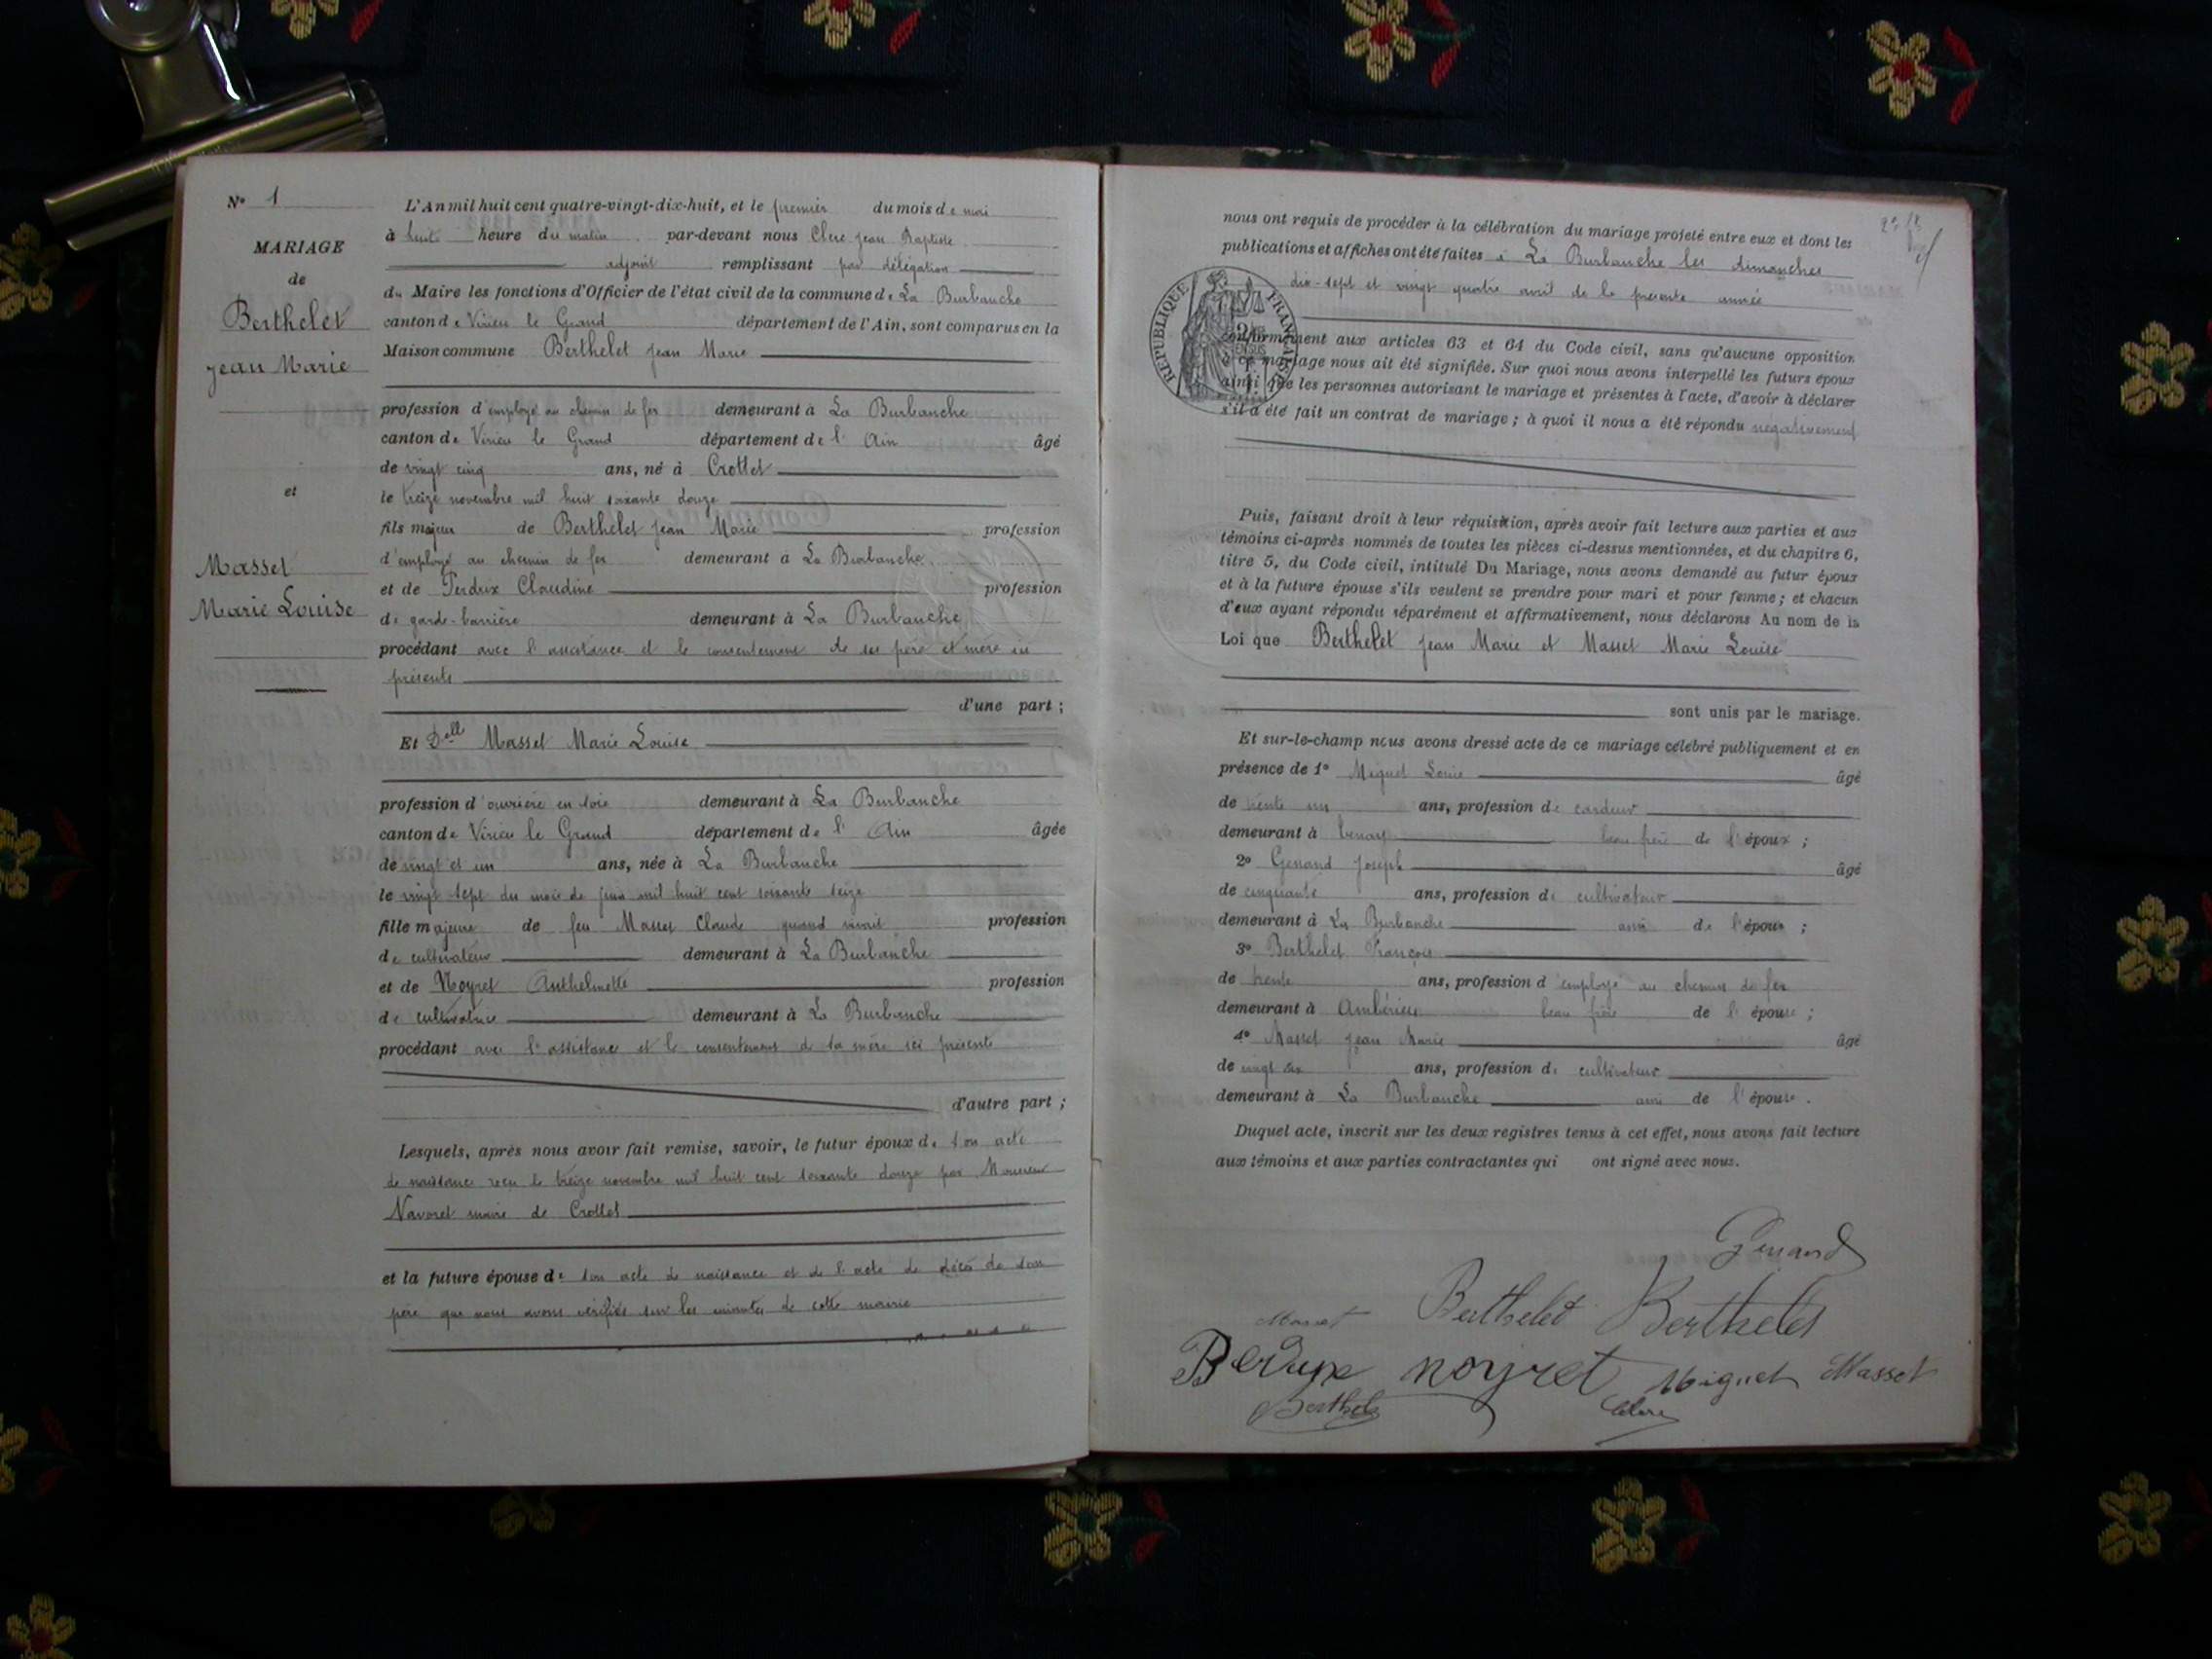 N° 1
MARIAGE
de
Berthelet
Jean Marie
et
Masset
Marie Louise
L'An mil huit cent quatre-vingt-dix-huit, et le premier du mois de mai
à huit heure du matin par-devant nous Clerc Jean Baptiste
adjoint remplissant par délégation
du Maire les fonctions d'Officier de l'état civil de la commune de La Burbanche
canton de Virieu le Grand département de l'Ain, sont comparus en la
Maison commune Berthelet Jean Marie
profession d'employé au chemin de fer demeurant à La Burbanche
canton de Virieu le Grand département de l'Ain âgé
de vingt cinq ans, né à Crottet
le treize novembre mil huit soixante douze
fils majeur de Berthelet Jean Marie profession
d'employé au chemin de fer demeurant à La Burbanche
et de Perdrix Claudine profession
de garde-barrière demeurant à La Burbanche
procédant avec l'assistance et le consentement de ses père et mère ici
présents
d'une part ;
Et Delle Masset Marie Louise
profession d'ouvrière en soie demeurant à La Burbanche
canton de Virieu le Grand département de l'Ain âgée
de vingt et un ans, née à La Burbanche
le vingt sept du mois de juin mil huit cent soixante seize
fille majeure de feu Masset Claude quand vivait profession
de cultivateur demeurant à La Burbanche
et de Noyret Anthelmette profession
de cultivatrice demeurant à La Burbanche
procédant avec l'assistance et le consentement de sa mère ici présente
d'autre part ;
Lesquels, après nous avoir fait remise, savoir, le futur époux de son acte
de naissance reçu le treize novembre mil huit cent soixante douze par Monsieur
Navoret maire de Crottet
et la future épouse de son acte de naissance et de l'acte de décès de son
père que nous avons vérifiés sur les minutes de cette mairie
nous ont requis de procéder à la célébration du mariage projeté entre eux et dont les
publications et affiches ont été faites à La Burbanche les dimanches
dix-sept et vingt quatre avril de la présente année
RÉPUBLIQUE FRANÇAISE
conformément aux articles 63 et 64 du Code civil, sans qu'aucune opposition
à ce mariage nous ait été signifiée. Sur quoi nous avons interpellé les futurs époux
ainsi que les personnes autorisant le mariage et présentes à l'acte, d'avoir à déclarer
s'il a été fait un contrat de mariage ; à quoi il nous a été répondu négativement
Puis, faisant droit à leur réquisition, après avoir fait lecture aux parties et aux
témoins ci-après nommés de toutes les pièces ci-dessus mentionnées, et du chapitre 6,
titre 5, du Code civil, intitulé Du Mariage, nous avons demandé au futur époux
et à la future épouse s'ils veulent se prendre pour mari et pour femme ; et chacun
d'eux ayant répondu séparément et affirmativement, nous déclarons Au nom de la
Loi que Berthelet Jean Marie et Masset Marie Louise
sont unis par le mariage.
Et sur-le-champ nous avons dressé acte de ce mariage célébré publiquement et en
présence de 1° Miguet Louis âgé
de trente un ans, profession de cardeur
demeurant à beau frère de l'époux ;
2° Genand Joseph âgé
de cinquante ans, profession de cultivateur
demeurant à La Burbanche ami de l'époux ;
3° Berthelet François
de trente ans, profession d'employé au chemin de fer
demeurant à Ambérieu beau frère de l'épouse ;
4° Masset Jean Marie âgé
de vingt six ans, profession de cultivateur
demeurant à La Burbanche ami de l'épouse.
Duquel acte, inscrit sur les deux registres tenus à cet effet, nous avons fait lecture
aux témoins et aux parties contractantes qui ont signé avec nous.
Genand
Masset Berthelet Berthelet
noyret Miguet Masset
Berthelet Clerc